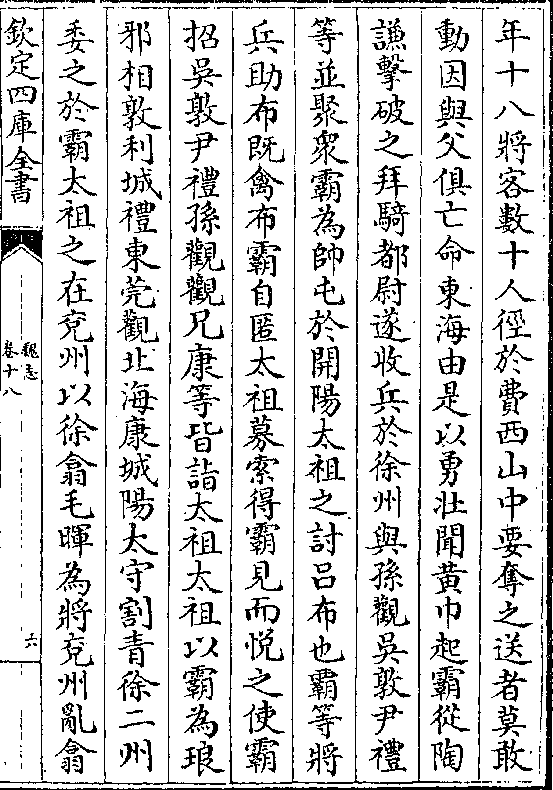 年十八將客數十人徑於費西山中要奪之送者莫敢
動因與父俱亡命東海由是以勇壯聞黃巾起霸從陶
謙擊破之拜騎都尉遂收兵於徐州與孫觀吳敦尹禮
等並聚衆霸為帥屯於開陽太祖之討呂布也霸等將
兵助布既禽布霸自匿太祖募索得霸見而悅之使霸
招吳敦尹禮孫觀觀兄康等皆詣太祖太祖以霸為琅
邪相敦利城禮東莞觀北海康城陽太守割青徐二州
委之於霸太祖之在兗州以徐翕毛暉為將兗州亂翕
欽定四庫全書
魏志
卷十八
六